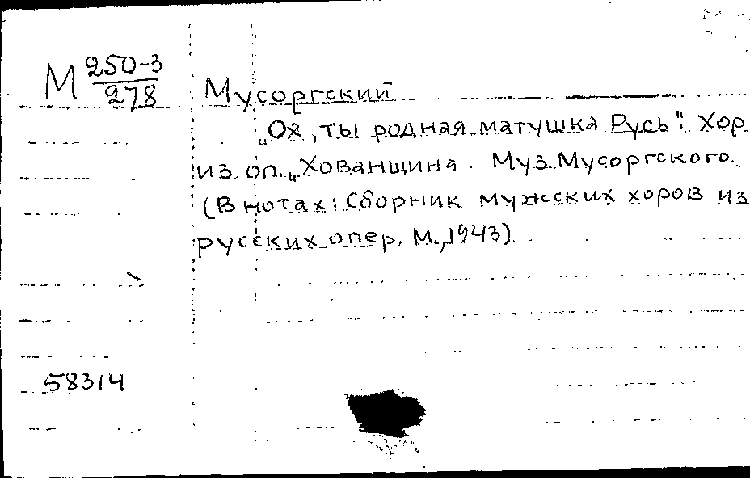 М 250-3
278
Мусоргский
„Ох, ты родная матушка Русь“. Хор
из оп. „Хованщина. Муз. Мусоргского.
(В нотах: Сборник мужских хоров из
русских опер. М., 1943).
58314